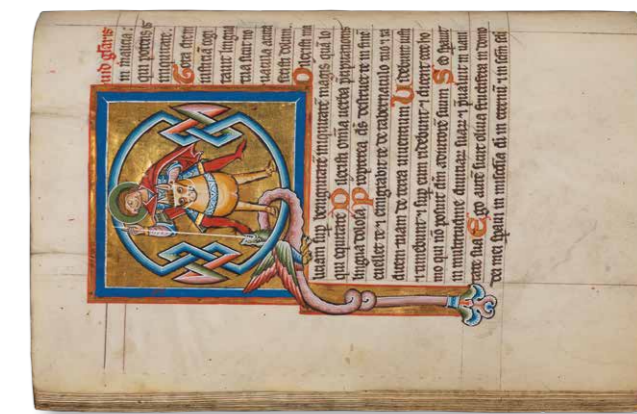 uid gl̄aris
in malicia:
qui potens ē
iniquitate.
Tota die in
iusticiā cogi
tauit lingua
tua sicut no
uacula acuta
fecisti dolum.
Dilexisti ma
liciā sup benignitatē iniquitatē magis quā lo
qui equitatē Dilexisti omnia uerba p̄cipitationis
lingua dolosa Propterea ds̄ destruet te in finē
euellet te ⁊ emigrabit te de tabernaculo tuo ⁊ ra
dicem tuam de terra uiuentium Uidebunt iusti
⁊ timebunt ⁊ sup eum ridebunt ⁊ dicent ecce ho
mo qui nō posuit dm̄ adiutorē suum Sed sperauit
in multitudine diuitiarū suarū ⁊ p̄ualuit in uani
tate sua Ego autē sicut oliua fructifera in domo
dei speraui in misericordia di in eternū ⁊ in sclm̄ scli